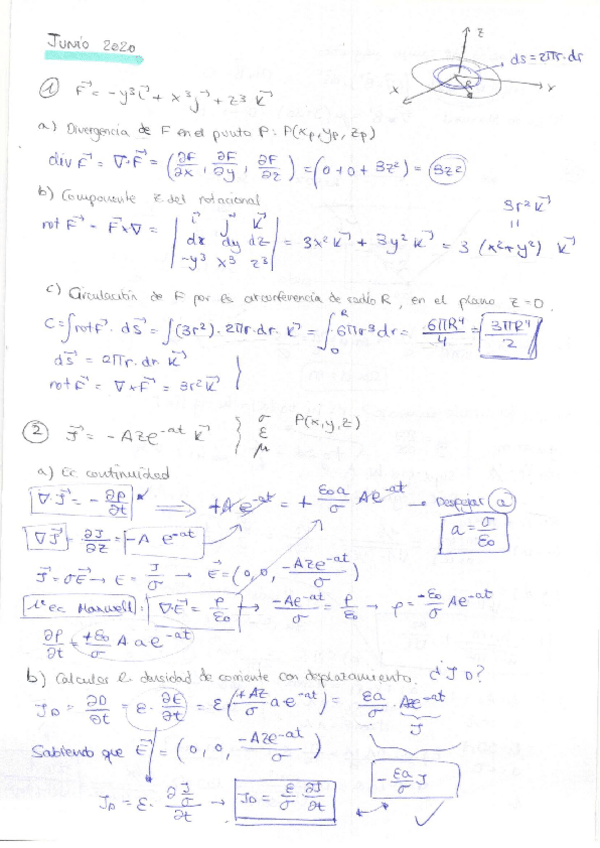 JUNIO 2020
z
ds = 2πr·dr
x
Y
① F⃗ = -y³ i⃗ + x³ j⃗ + z³ K⃗
a) Divergencia de F en el punto P: P(xp, yp, zp)
div F⃗ = ∇·F⃗ = (∂F/∂x, ∂F/∂y, ∂F/∂z) = (0+0+3z²) = 3z²
b) Componente z del rotacional
3r² K⃗
=
rot F⃗ = F⃗×∇ = | i⃗ j⃗ K⃗ | dx dy dz | -y³ x³ z³ | = 3x² K⃗ + 3y² K⃗ = 3 (x²+y²) K⃗
c) Circulación de F por es circonferencia de radio R, en el plano z=0.
C = ∫rot F⃗ · dS⃗ = ∫(3r²)·2πr·dr·K⃗ = ∫₀ᴿ 6πr³dr = 6πR⁴/4 = 3πR⁴/2
dS⃗ = 2πr·dr K⃗
rot F⃗ = ∇×F⃗ = 3r² K⃗ }
② J⃗ = -Aze^-at K⃗ } σ ε μ P(x,y,z)
a) Ec continuidad
∇·J⃗ = -∂ρ/∂t ⟹ +Ae^-at = + ε₀a/σ Ae^-at → Despejar a
∇J⃗ = ∂J/∂z = -A e^-at
a = σ/ε₀
J⃗ = σE⃗ → E = J/σ → E⃗ = (0, 0, -Aze^-at/σ)
1ª ec Maxwell: ∇·E⃗ = ρ/ε₀ → -Ae^-at/σ = ρ/ε₀ → ρ = -ε₀/σ Ae^-at
∂ρ/∂t = +ε₀/σ A a e^-at
b) Calcular la densidad de corriente con desplatamiento. ¿J D?
J_D = ∂D/∂t = ε·∂E/∂t = ε(+Az/σ a e^-at) = εa/σ · Aze^-at
J
Sabiendo que E⃗ = (0, 0, -Aze^-at/σ)
-εa/σ J
J_D = ε· ∂ J/σ /∂t → J_D = ε/σ ∂J/∂t